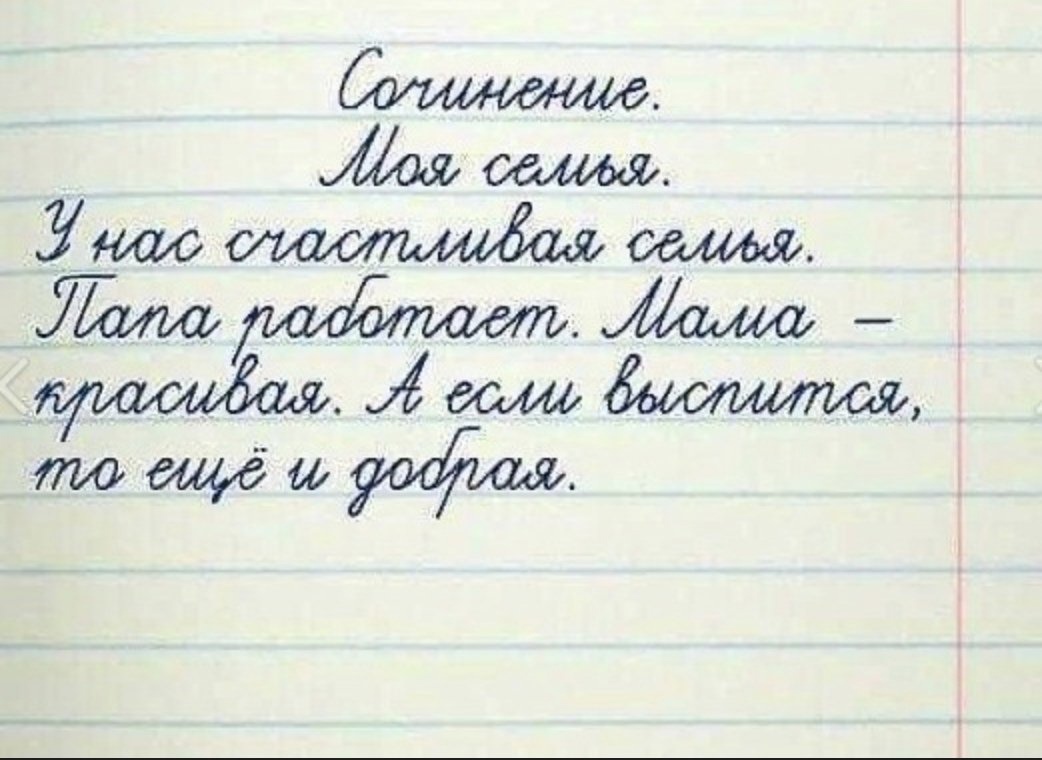 Сочинение.
Моя семья.
У нас счастливая семья.
Папа работает. Мама –
красивая. А если выспится,
то ещё и добрая.